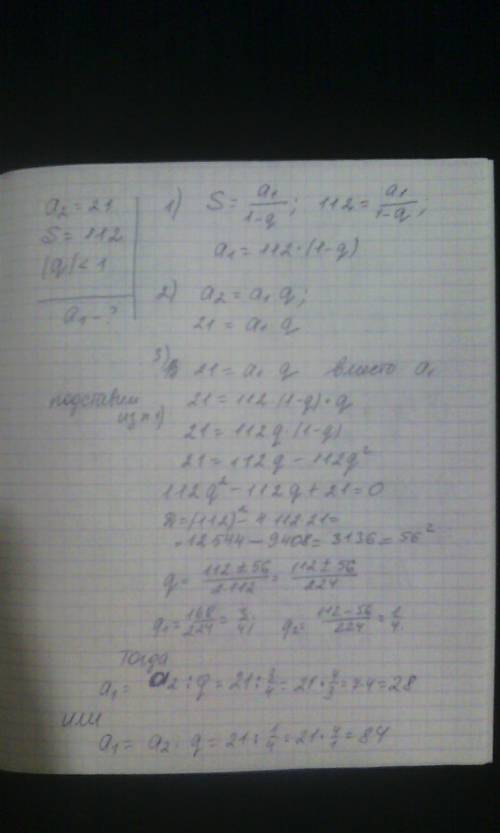 a₂ = 21
S = 112
|q| < 1
a₁ - ?
1) S = a₁/(1-q); 112 = a₁/(1-q);
a₁ = 112·(1-q)
2) a₂ = a₁ q;
21 = a₁ q
3) В 21 = a₁ q вместо a₁
подставим из п 1) 21 = 112 (1-q)·q
21 = 112q (1-q)
21 = 112q - 112q²
112q² - 112q + 21 = 0
D = (112)² - 4·112·21 =
= 12544 - 9408 = 3136 = 56²
q = (112 ± 56)/(2·112) = (112 ± 56)/224
q₁ = 168/224 = 3/4; q₂ = (112-56)/224 = 1/4.
Тогда
a₁ = a₂ : q = 21 : 3/4 = 21 · 4/3 = 7·4 = 28
или
a₁ = a₂ : q = 21 : 1/4 = 21 · 4/1 = 84